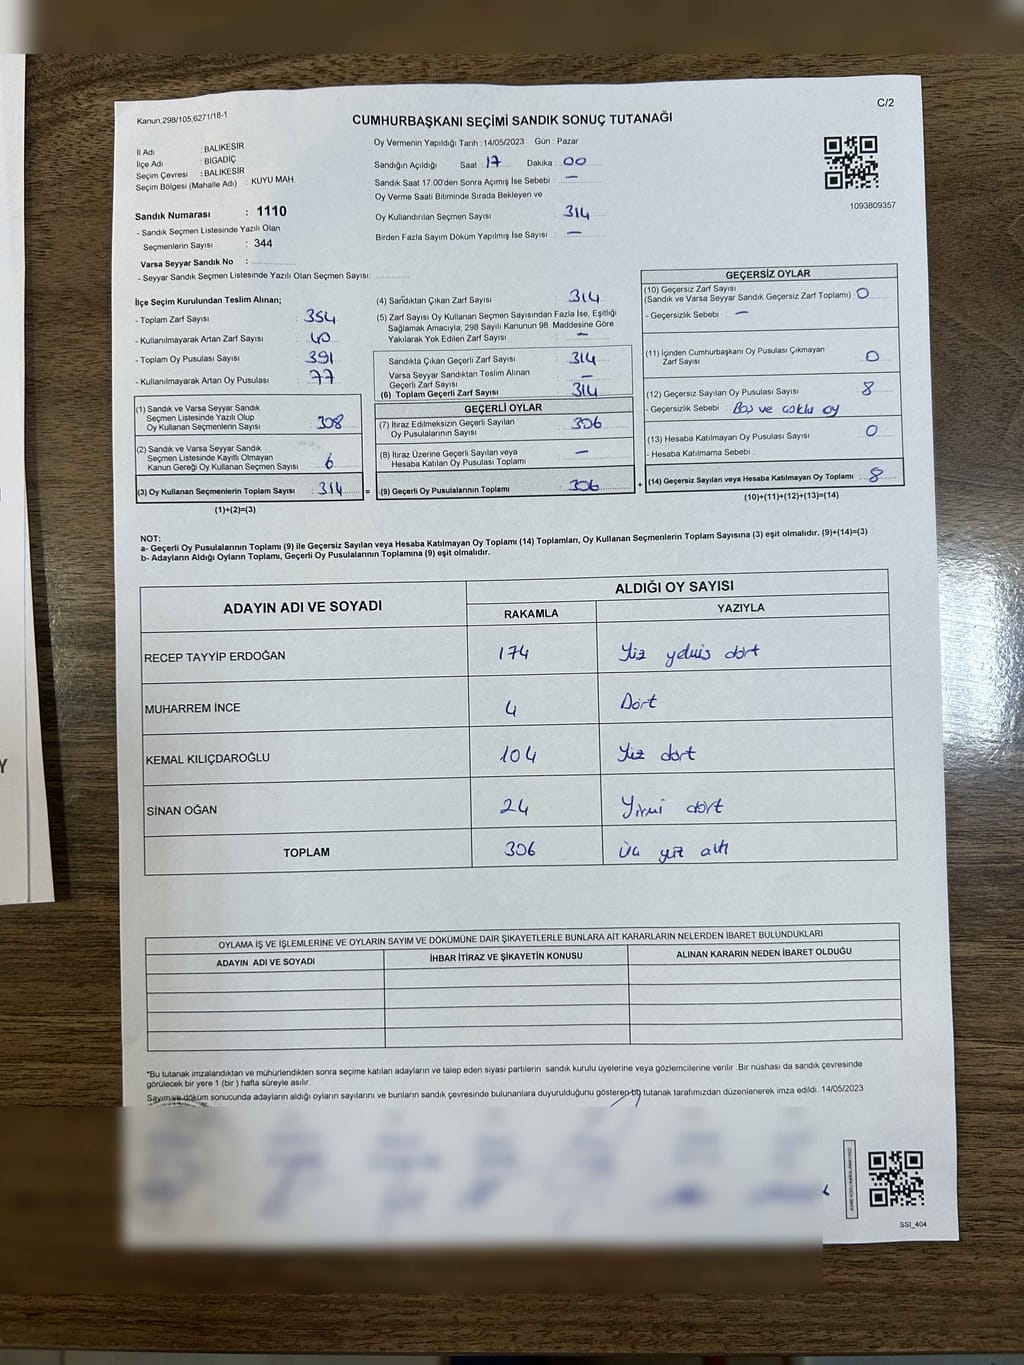 Kanun;298/105,6271/18-1
C/2
CUMHURBAŞKANI SEÇİMİ SANDIK SONUÇ TUTANAĞI
İl Adı : BALIKESİR
İlçe Adı : BİGADİÇ
Seçim Çevresi : BALIKESİR
Seçim Bölgesi (Mahalle Adı) : KUYU MAH.
Sandık Numarası : 1110
- Sandık Seçmen Listesinde Yazılı Olan
Seçmenlerin Sayısı : 344
Varsa Seyyar Sandık No :
- Seyyar Sandık Seçmen Listesinde Yazılı Olan Seçmen Sayısı:
Oy Vermenin Yapıldığı Tarih : 14/05/2023 Gün : Pazar
Sandığın Açıldığı Saat 17 Dakika : 00
Sandık Saat 17.00'den Sonra Açılmış İse Sebebi : —
Oy Verme Saati Bitiminde Sırada Bekleyen ve
Oy Kullandırılan Seçmen Sayısı : 314
Birden Fazla Sayım Döküm Yapılmış İse Sayısı : —
1093809357
İlçe Seçim Kurulundan Teslim Alınan;
- Toplam Zarf Sayısı : 354
- Kullanılmayarak Artan Zarf Sayısı : 40
- Toplam Oy Pusulası Sayısı : 391
- Kullanılmayarak Artan Oy Pusulası : 77
(1) Sandık ve Varsa Seyyar Sandık
Seçmen Listesinde Yazılı Olup
Oy Kullanan Seçmenlerin Sayısı : 308
(2) Sandık ve Varsa Seyyar Sandık
Seçmen Listesinde Kayıtlı Olmayan
Kanun Gereği Oy Kullanan Seçmen Sayısı : 6
(3) Oy Kullanan Seçmenlerin Toplam Sayısı : 314
(1)+(2)=(3)
(4) Sandıktan Çıkan Zarf Sayısı : 314
(5) Zarf Sayısı Oy Kullanan Seçmen Sayısından Fazla İse, Eşitliği
Sağlamak Amacıyla; 298 Sayılı Kanunun 98. Maddesine Göre
Yakılarak Yok Edilen Zarf Sayısı : —
Sandıkta Çıkan Geçerli Zarf Sayısı : 314
Varsa Seyyar Sandıktan Teslim Alınan
Geçerli Zarf Sayısı : —
(6) Toplam Geçerli Zarf Sayısı : 314
GEÇERLİ OYLAR
(7) İtiraz Edilmeksizin Geçerli Sayılan
Oy Pusulalarının Sayısı : 306
(8) İtiraz Üzerine Geçerli Sayılan veya
Hesaba Katılan Oy Pusulası Toplamı : —
= (9) Geçerli Oy Pusulalarının Toplamı : 306
GEÇERSİZ OYLAR
(10) Geçersiz Zarf Sayısı
(Sandık ve Varsa Seyyar Sandık Geçersiz Zarf Toplamı) : 0
- Geçersizlik Sebebi : —
(11) İçinden Cumhurbaşkanı Oy Pusulası Çıkmayan
Zarf Sayısı : 0
(12) Geçersiz Sayılan Oy Pusulası Sayısı : 8
- Geçersizlik Sebebi : Boş ve çoklu oy
(13) Hesaba Katılmayan Oy Pusulası Sayısı : 0
- Hesaba Katılmama Sebebi :
+ (14) Geçersiz Sayılan veya Hesaba Katılmayan Oy Toplamı : 8
(10)+(11)+(12)+(13)=(14)
NOT:
a- Geçerli Oy Pusulalarının Toplamı (9) ile Geçersiz Sayılan veya Hesaba Katılmayan Oy Toplamı (14) Toplamları, Oy Kullanan Seçmenlerin Toplam Sayısına (3) eşit olmalıdır. (9)+(14)=(3)
b- Adayların Aldığı Oyların Toplamı, Geçerli Oy Pusulalarının Toplamına (9) eşit olmalıdır.
ADAYIN ADI VE SOYADI
ALDIĞI OY SAYISI
RAKAMLA YAZIYLA
RECEP TAYYİP ERDOĞAN 174 Yüz yetmiş dört
MUHARREM İNCE 4 Dört
KEMAL KILIÇDAROĞLU 104 Yüz dört
SİNAN OĞAN 24 Yirmi dört
TOPLAM 306 Üç yüz altı
OYLAMA İŞ VE İŞLEMLERİNE VE OYLARIN SAYIM VE DÖKÜMÜNE DAİR ŞİKAYETLERLE BUNLARA AİT KARARLARIN NELERDEN İBARET BULUNDUKLARI
ADAYIN ADI VE SOYADI İHBAR İTİRAZ VE ŞİKAYETİN KONUSU ALINAN KARARIN NEDEN İBARET OLDUĞU
*Bu tutanak imzalandıktan ve mühürlendikten sonra seçime katılan adayların ve talep eden siyasi partilerin sandık kurulu üyelerine veya gözlemcilerine verilir. Bir nüshası da sandık çevresinde
görülecek bir yere 1 (bir ) hafta süreyle asılır.
Sayım ve döküm sonucunda adayların aldığı oyların sayılarını ve bunların sandık çevresinde bulunanlara duyurulduğunu gösteren bu tutanak tarafımızdan düzenlenerek imza edildi. 14/05/2023
SSI_404
Y